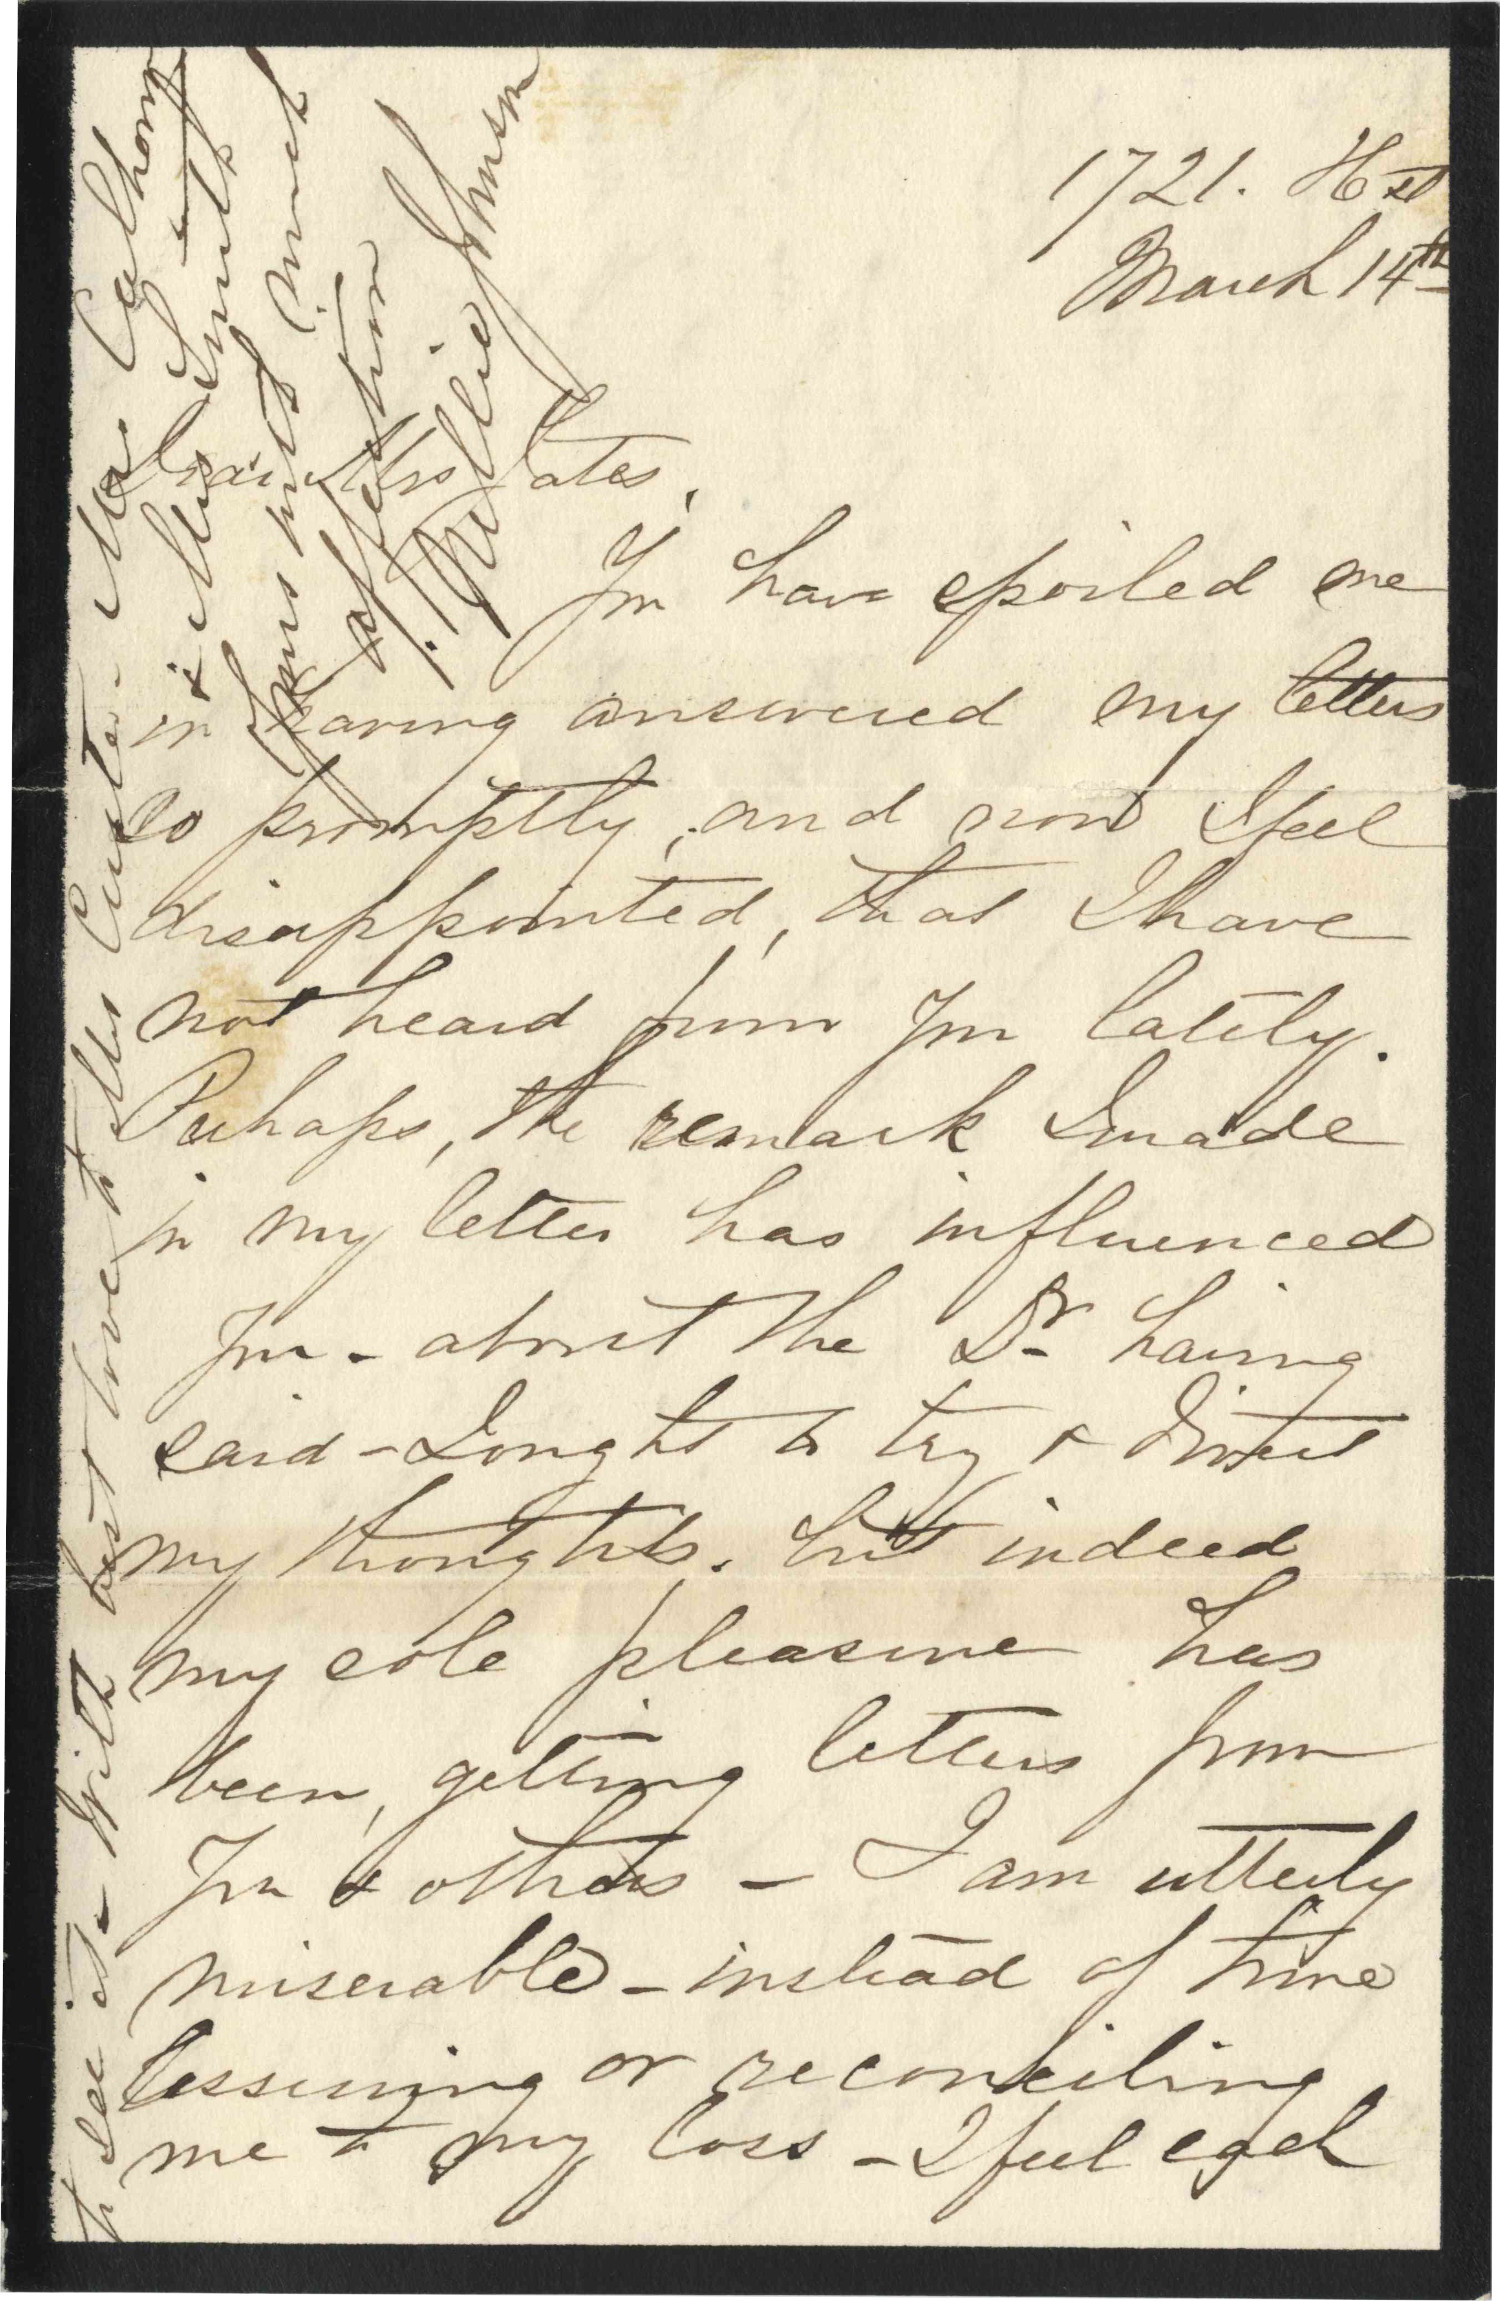 1721. H st
March 14th
Dear Mrs Yates,
You have spoiled me
in having answered my letters
so promptly, and now I feel
disappointed, that I have
not heard from you lately.
Perhaps, the remark I made
in my letter has influenced
you - about the Dr having
said - I ought to try & divert
my thoughts. but indeed
my sole pleasure has
been, getting letters from
you & others - I am utterly
miserable - instead of time
lessening or reconciling
me to my loss - I feel each
to see it - With best love to Mrs Custer - Mrs Calhoun
& Mrs Smith
Yours with much
affection
Nellie Johnson